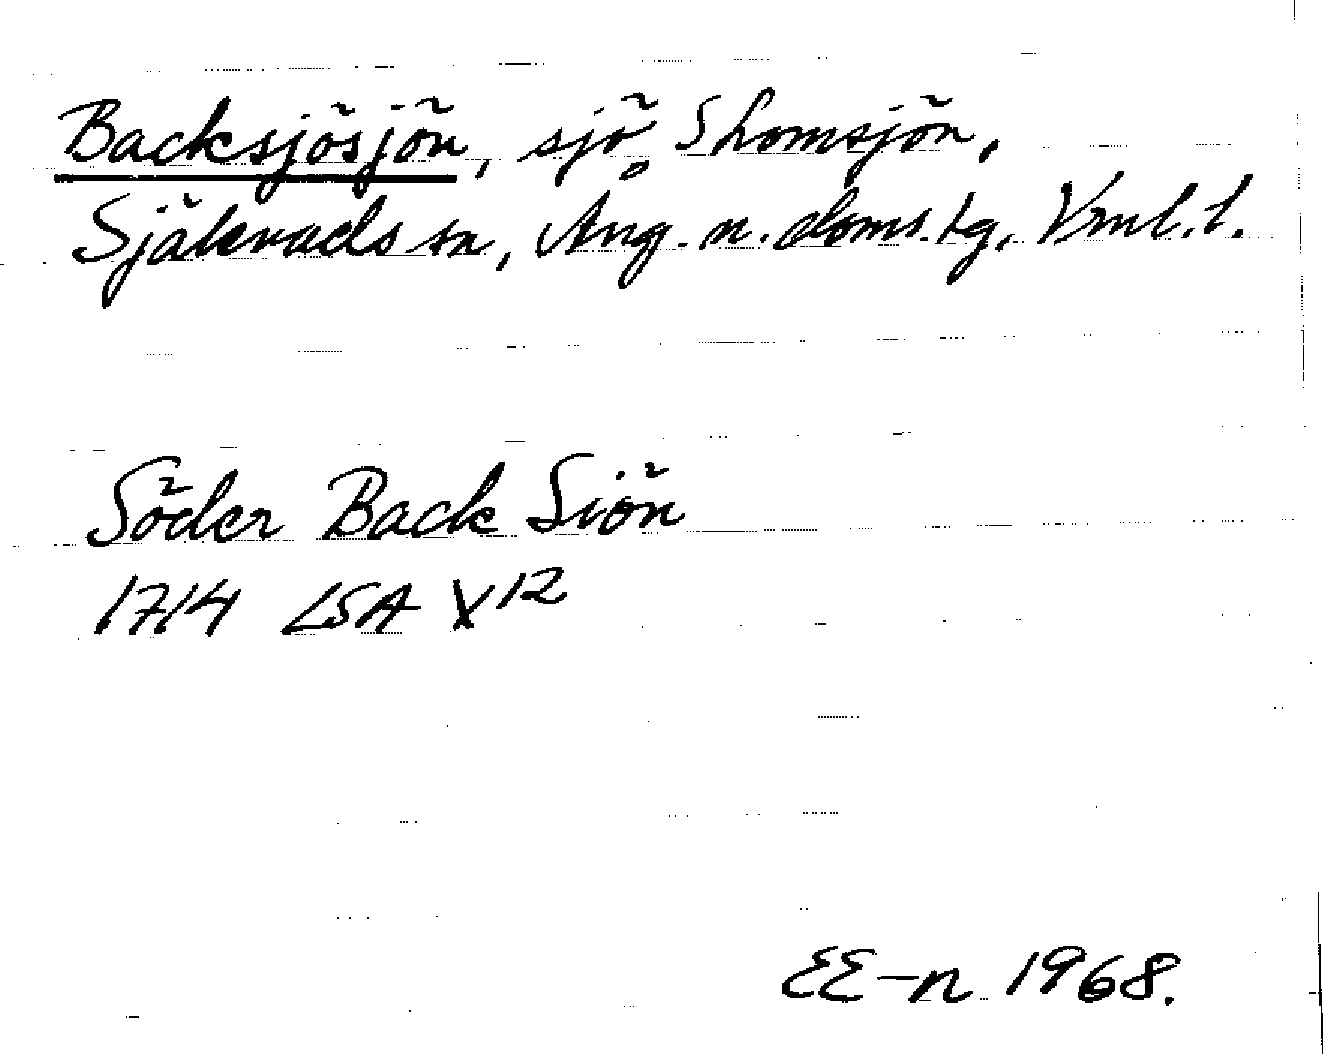 Backsjösjön, sjö, Skomsjön,
Själevads sn, Ång. n. doms. tg, Vnl. l.
Söder Back Siön
1714 LSA X12
EE-n 1968.